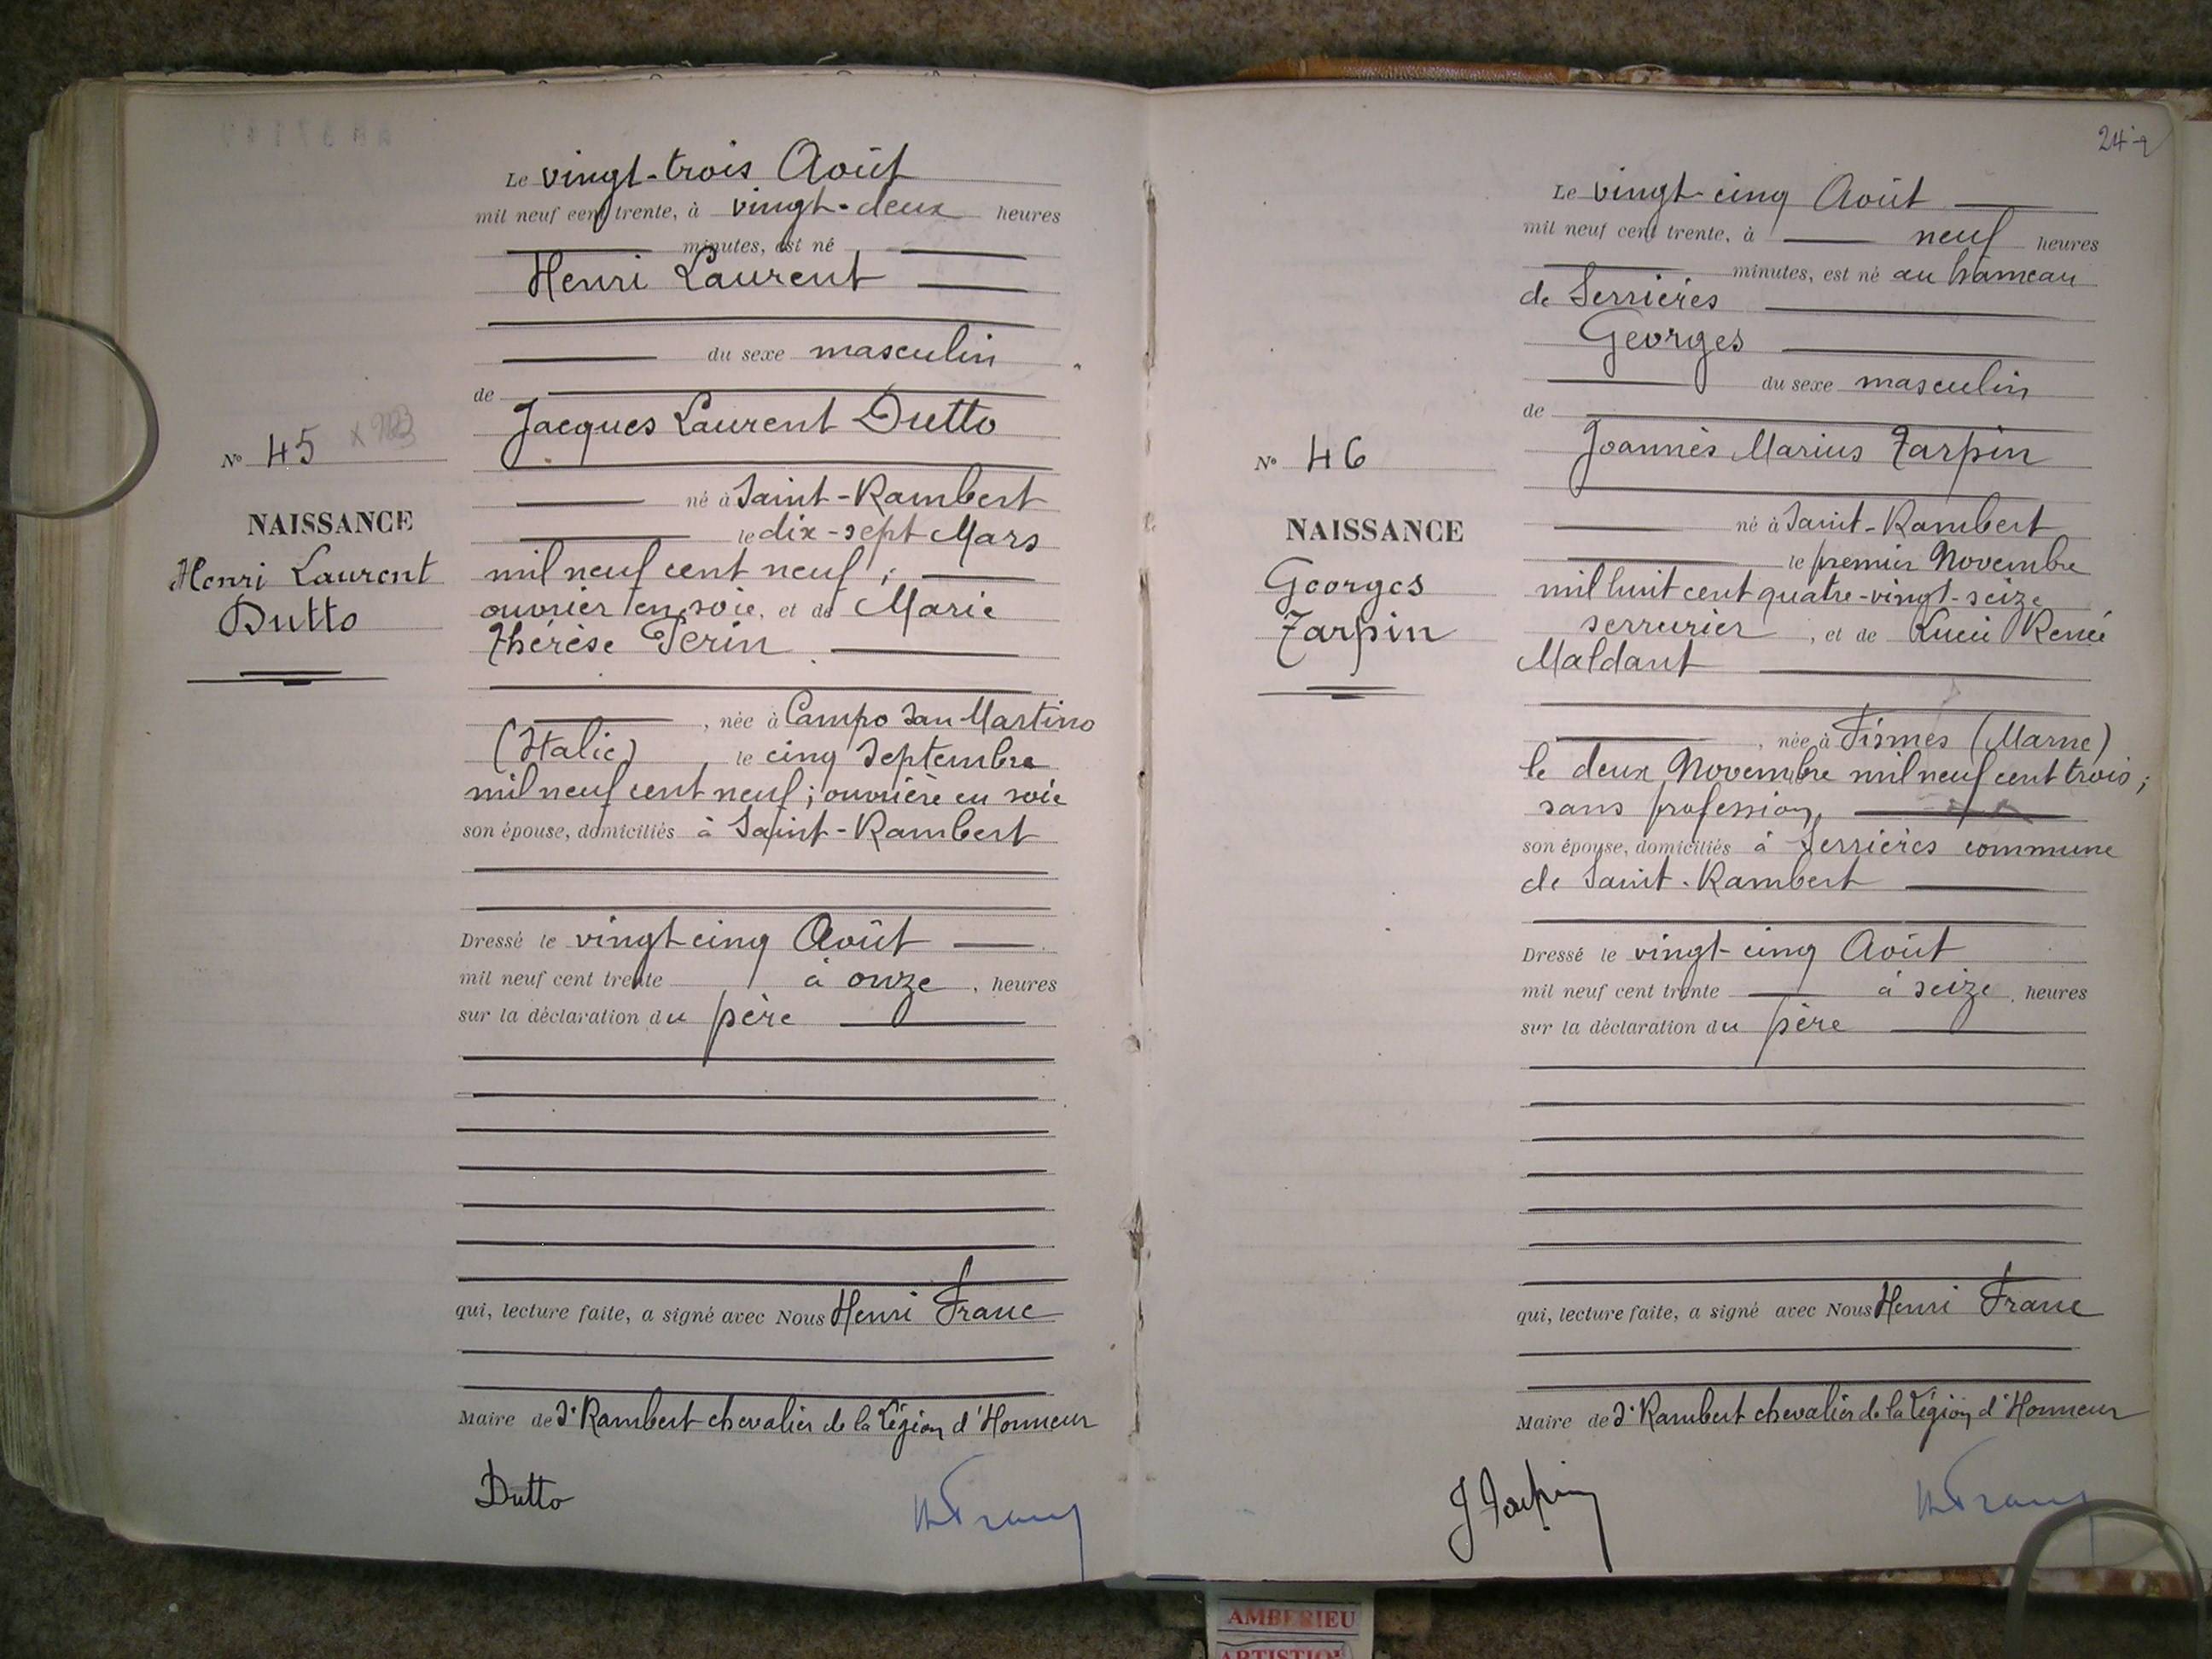 Le vingt-trois Août
mil neuf cent trente, à vingt-deux heures
minutes, est né
Henri Laurent
du sexe masculin
de
Jacques Laurent Dutto
né à Saint-Rambert
le dix-sept Mars
mil neuf cent neuf ;
ouvrier en soie, et de Marie
Thérèse Perin
, née à Campo San Martino
(Italie) le cinq Septembre
mil neuf cent neuf ; ouvrière en soie
son épouse, domiciliés à Saint-Rambert
Dressé le vingt-cinq Août
mil neuf cent trente à onze, heures
sur la déclaration du père
qui, lecture faite, a signé avec Nous Henri Franc
Maire de St Rambert chevalier de la Légion d'Honneur
Dutto
H Franc
No 45
NAISSANCE
Henri Laurent
Dutto
Le vingt-cinq Août
mil neuf cent trente, à neuf heures
minutes, est né au hameau
de Serrières
Georges
du sexe masculin
de
Joannès Marius Tarpin
né à Saint-Rambert
le premier Novembre
mil huit cent quatre-vingt-seize
serrurier, et de Lucie Renée
Maldant
, née à Fismes (Marne)
le deux Novembre mil neuf cent trois ;
sans profession,
son épouse, domiciliés à Serrières commune
de Saint-Rambert
Dressé le vingt-cinq Août
mil neuf cent trente à seize, heures
sur la déclaration du père
qui, lecture faite, a signé avec Nous Henri Franc
Maire de St Rambert chevalier de la Légion d'Honneur
J Tarpin
H Franc
No 46
NAISSANCE
Georges
Tarpin
24
AMBERIEU